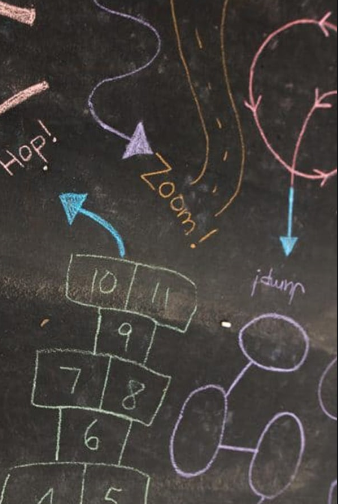 Hop!
Zoom!
Jump!
10 11
9
7 8
6
4 5